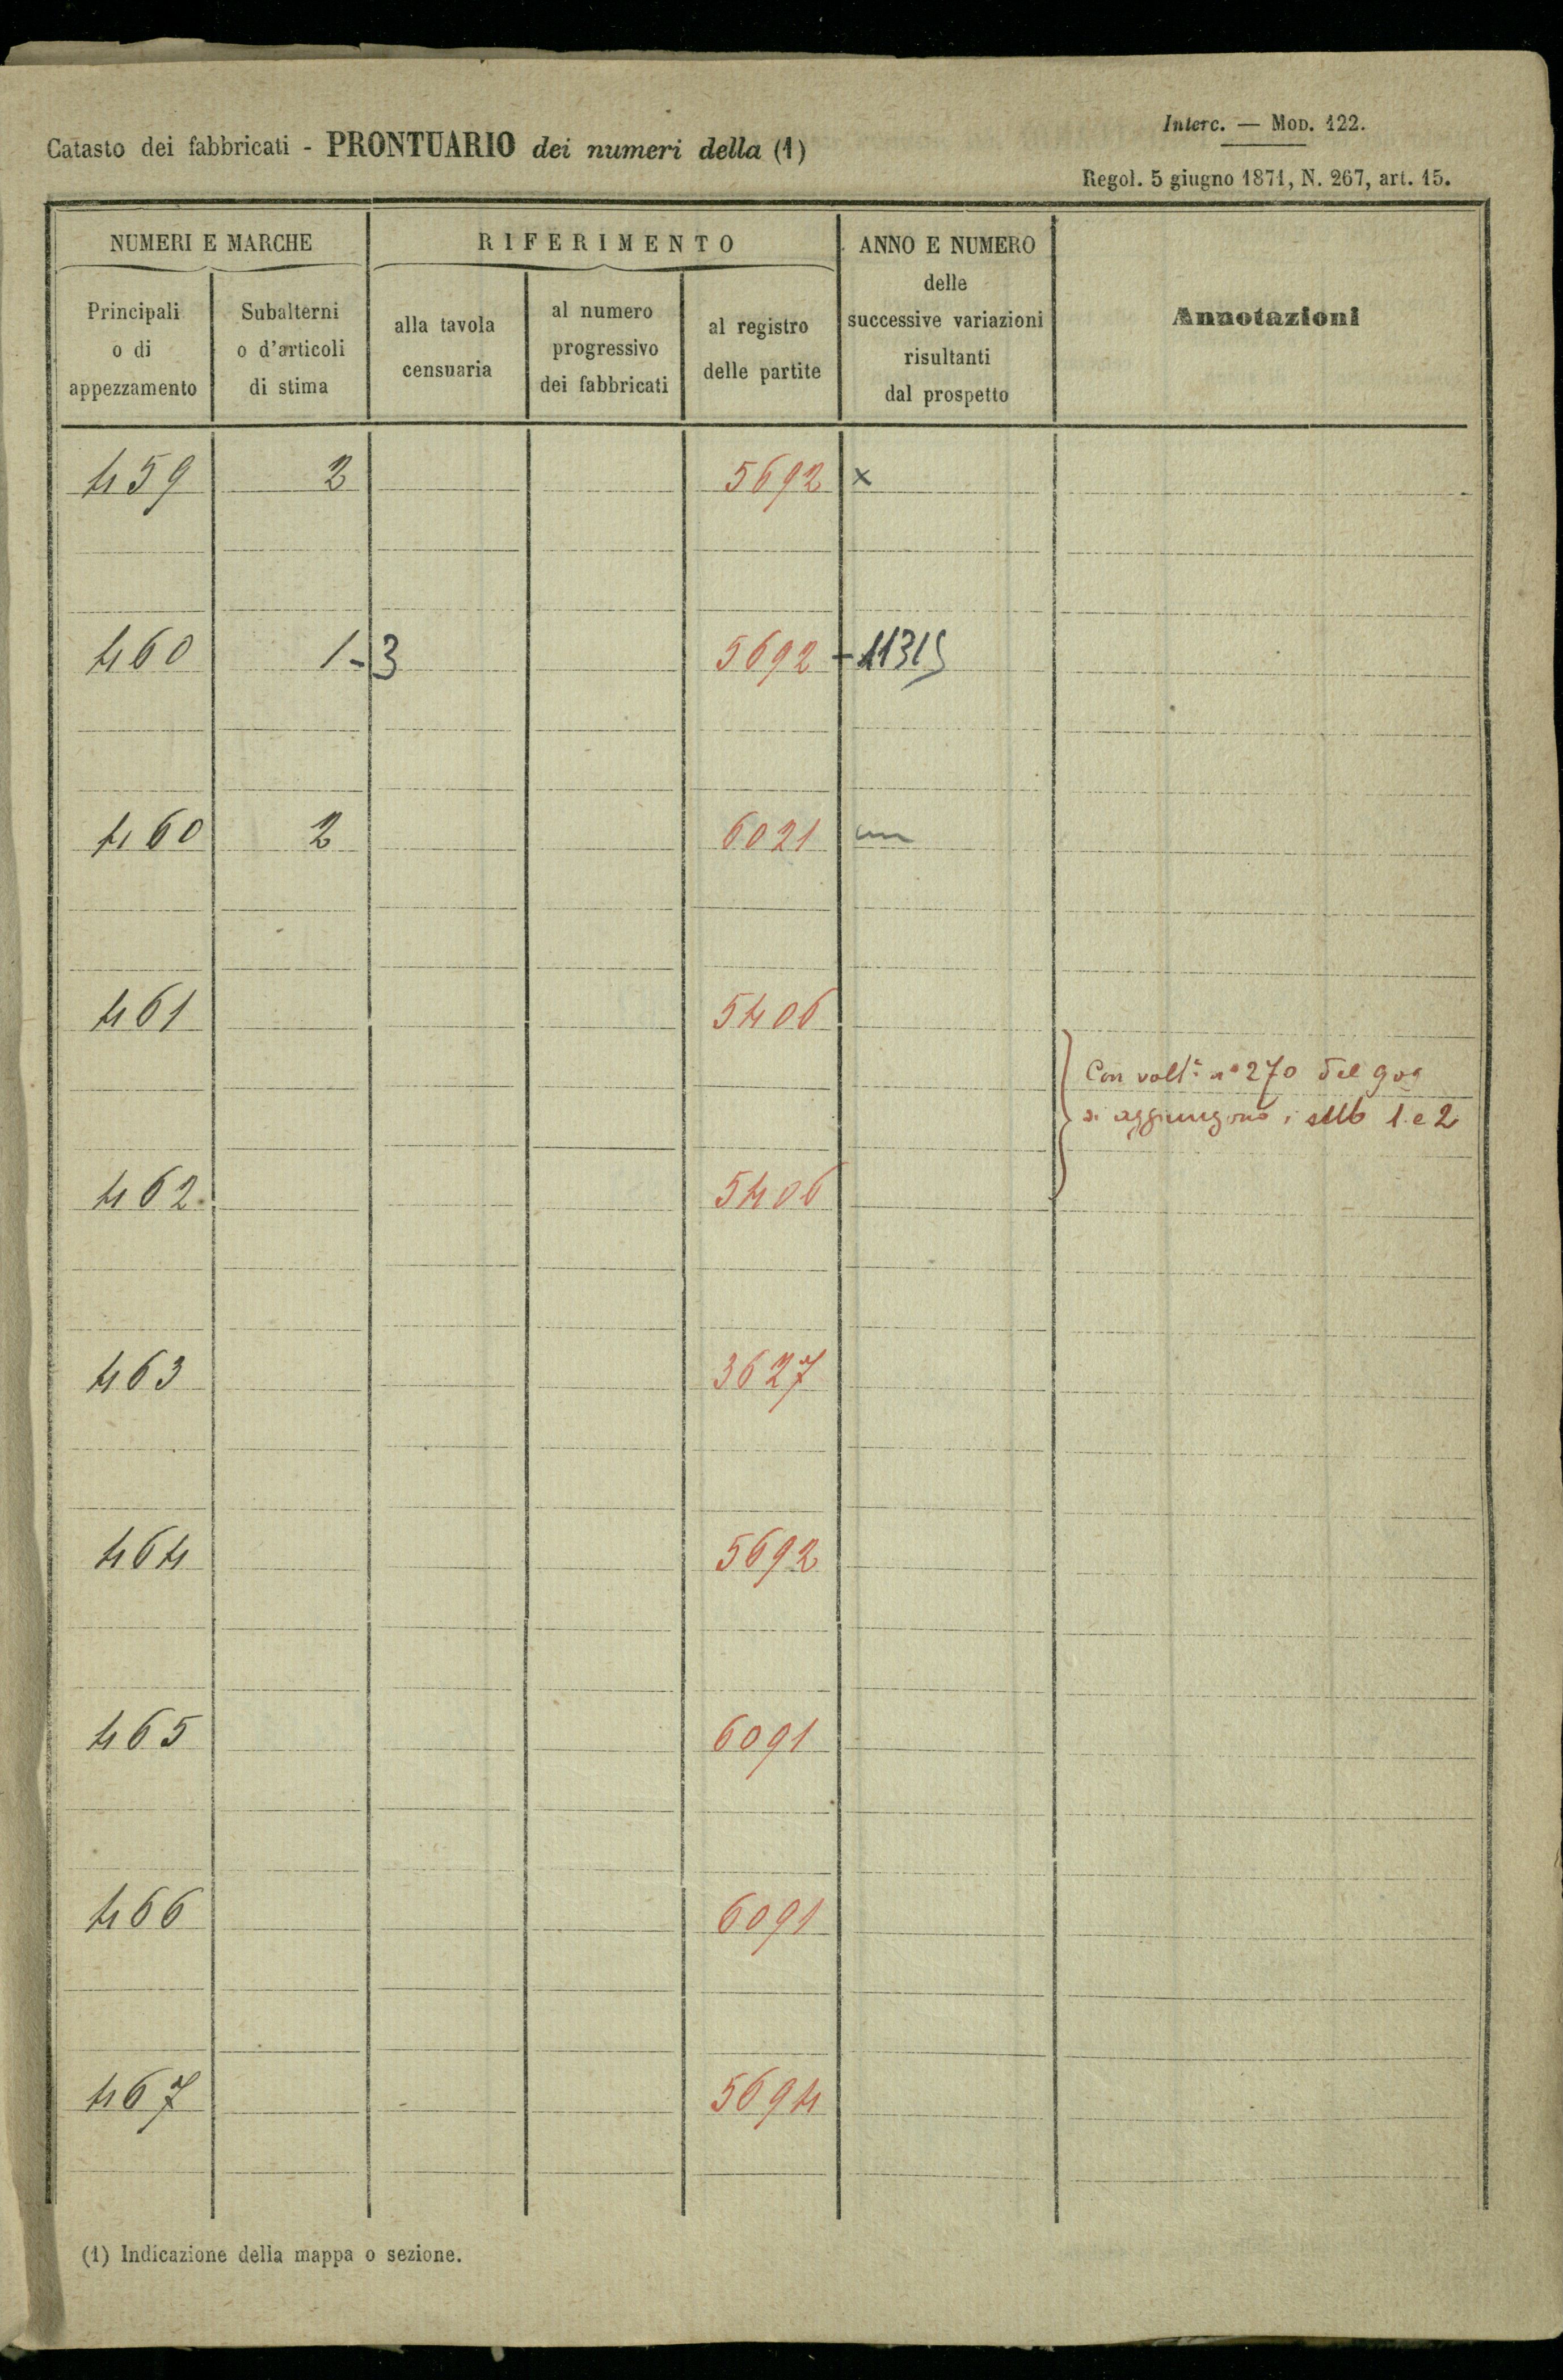 Interc. — Mod. 122.
Catasto dei fabbricati - PRONTUARIO dei numeri della (1)
Regol. 5 giugno 1871, N. 267, art. 15.
NUMERI E MARCHE
RIFERIMENTO
ANNO E NUMERO
delle
successive variazioni
risultanti
dal prospetto
Annotazioni
Principali
o di
appezzamento
Subalterni
o d'articoli
di stima
alla tavola
censuaria
al numero
progressivo
dei fabbricati
al registro
delle partite
459 2 5692 x
460 1-3 5692 - 11315
460 2 6021
461 5406
Con volt.ª n° 270 del 909
si aggiungono i sub 1 e 2
462 5406
463 3627
464 5692
465 6091
466 6091
467 5694
(1) Indicazione della mappa o sezione.